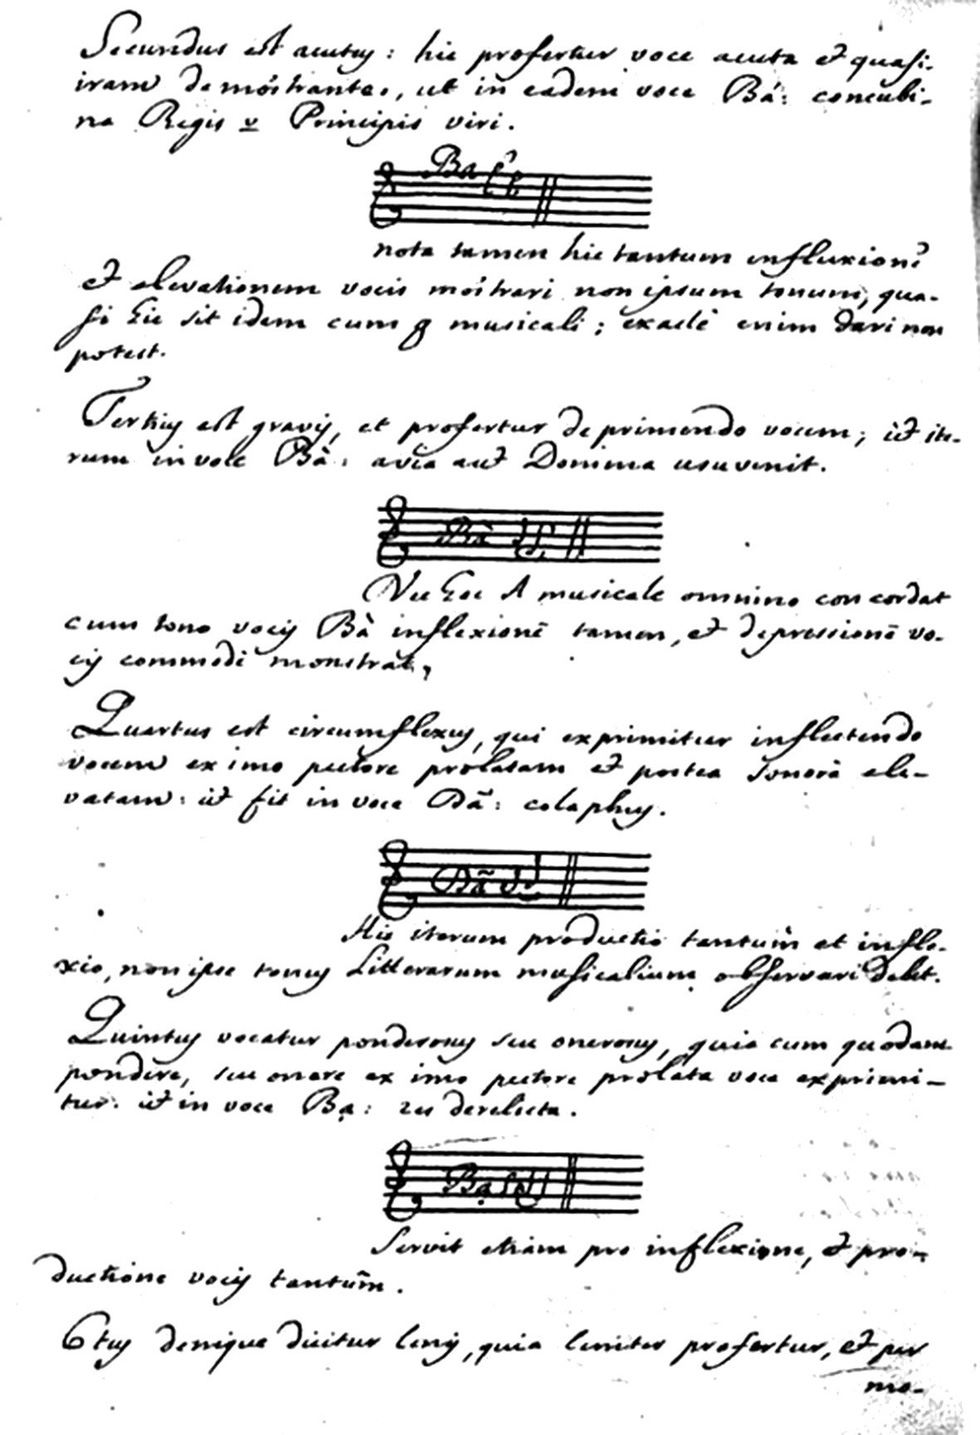 Secundus est acutus: hic profertur voce acuta et quasi
iram demõstrante, ut in eadem voce Bá: concubi-
na Regis v Principis viri.
Ba
nota tamen hic tantum influxionẽ
et elevationem vocis mõstrari non ipsum tonum, qua-
si hic sit idem cum g musicali; exactè enim dari non
potest.
Tertius est gravis, et profertur deprimendo vocem; id ite-
rum in voce Bà: avia aut Domina usu venit.
Bà
Nec hoc A musicale omnino concordat
cum tono vocis Bà inflexionẽ tamen, et depressionẽ vo-
cis commodè monstrat,
Quartus est circumflexus, qui exprimitur inflectendo
vocem ex imo pectore prolatam et postea sonorà ele-
vatam: id fit in voce Bã: colaphus.
Bã
Hic iterum productio tantum et infle-
xio, non ipse tonus Litterarum musicalium observari debet.
Quintus vocatur ponderosus seu onerosus, quia cum quodam
pondere, seu onere ex imo pectore prolata voce exprimi-
tur. id in voce Bạ: res derelicta.
Bạ
Servit etiam pro inflexione, et pro-
ductione vocis tantum̃.
6tus denique dicitur lenis, quia leniter profertur, et per
mo-